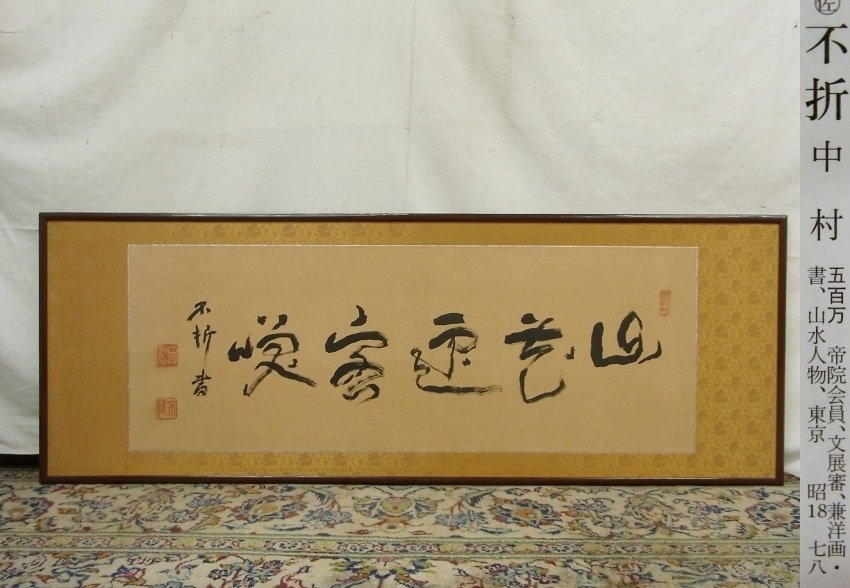 山花迎客咲
不折書
佐
不折 中村
五百万 帝院会員、文展審、兼洋画・
書、山水人物、東京 昭18 七八